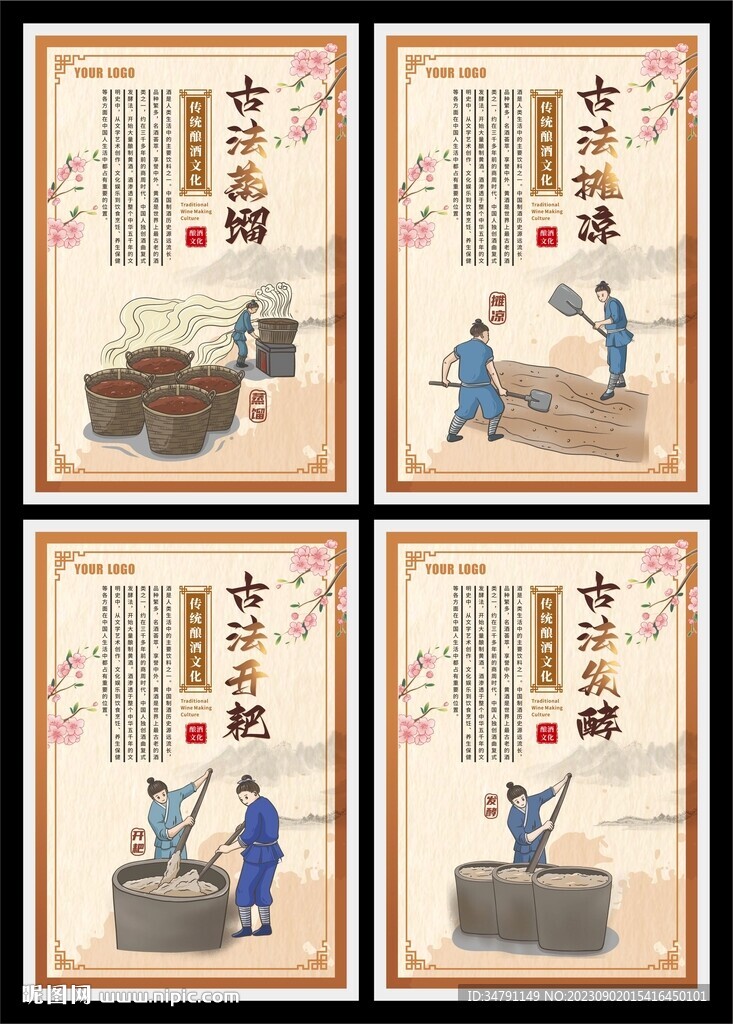 YOUR LOGO
古法蒸馏
传统酿酒文化
Traditional
Wine Making
Culture
酿酒
文化
酒是人类生活中的主要饮料之一。中国制酒历史源远流长，
品种繁多，名酒荟萃，享誉中外。黄酒是世界上最古老的酒
类之一，约在三千多年前的商周时代，中国人独创酒曲复式
发酵法，开始大量酿制黄酒。酒渗透于整个中华五千年的文
明史中，从文学艺术创作、文化娱乐到饮食烹饪、养生保健
等各方面在中国人生活中都占有重要的位置。
蒸馏
YOUR LOGO
古法摊凉
传统酿酒文化
Traditional
Wine Making
Culture
酿酒
文化
酒是人类生活中的主要饮料之一。中国制酒历史源远流长，
品种繁多，名酒荟萃，享誉中外。黄酒是世界上最古老的酒
类之一，约在三千多年前的商周时代，中国人独创酒曲复式
发酵法，开始大量酿制黄酒。酒渗透于整个中华五千年的文
明史中，从文学艺术创作、文化娱乐到饮食烹饪、养生保健
等各方面在中国人生活中都占有重要的位置。
摊凉
YOUR LOGO
古法开耙
传统酿酒文化
Traditional
Wine Making
Culture
酿酒
文化
酒是人类生活中的主要饮料之一。中国制酒历史源远流长，
品种繁多，名酒荟萃，享誉中外。黄酒是世界上最古老的酒
类之一，约在三千多年前的商周时代，中国人独创酒曲复式
发酵法，开始大量酿制黄酒。酒渗透于整个中华五千年的文
明史中，从文学艺术创作、文化娱乐到饮食烹饪、养生保健
等各方面在中国人生活中都占有重要的位置。
开耙
YOUR LOGO
古法发酵
传统酿酒文化
Traditional
Wine Making
Culture
酿酒
文化
酒是人类生活中的主要饮料之一。中国制酒历史源远流长，
品种繁多，名酒荟萃，享誉中外。黄酒是世界上最古老的酒
类之一，约在三千多年前的商周时代，中国人独创酒曲复式
发酵法，开始大量酿制黄酒。酒渗透于整个中华五千年的文
明史中，从文学艺术创作、文化娱乐到饮食烹饪、养生保健
等各方面在中国人生活中都占有重要的位置。
发酵
昵图网 www.nipic.com
ID:34791149 NO:20230902015416450101